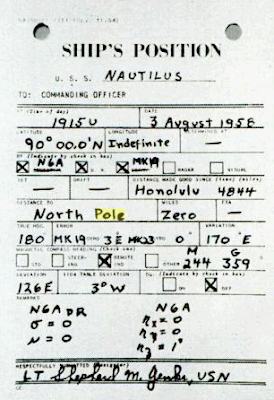 SHIP'S POSITION
U. S. S. NAUTILUS
TO: COMMANDING OFFICER
AT (Time of day) DATE
1915U 3 August 1958
LATITUDE LONGITUDE DETERMINED AT
90°00.0'N Indefinite —
BY (Indicate by check in box)
N6A D.R. MK19 RADAR VISUAL
SET DRIFT DISTANCE MADE GOOD SINCE (time) (miles)
— — Honolulu 4844
DISTANCE TO MILES ETA
North Pole Zero —
TRUE HDG. ERROR VARIATION
180 MK19 GYRO 3°E MK23 GYRO 0° 170°E
MAGNETIC COMPASS HEADING (Check one)
STD STEERING REMOTE IND OTHER M 244 G 359
DEVIATION 1104 TABLE DEVIATION DG: (Indicate by check in box)
126E 3°W ON OFF
REMARKS
N6A DR N6A
= 0 = 0
= 0 = 0
= 1"
RESPECTFULLY SUBMITTED
LT Shepherd M. Jenks, USN